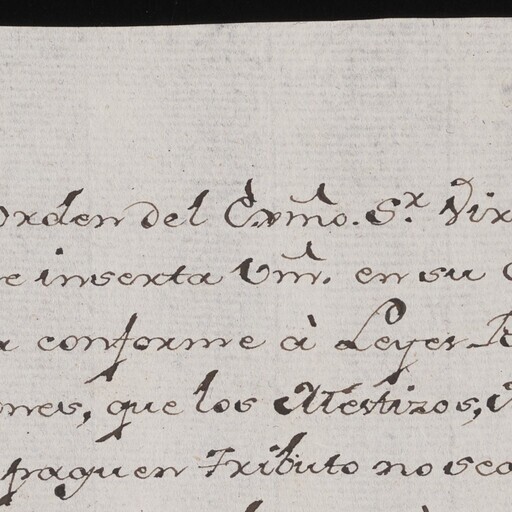 Orden del Exmo. Sr. Vir
e inserta Vm. en su
conforme à Leyes Re
ones, que los Mestizos,
paguen Tributo no sea